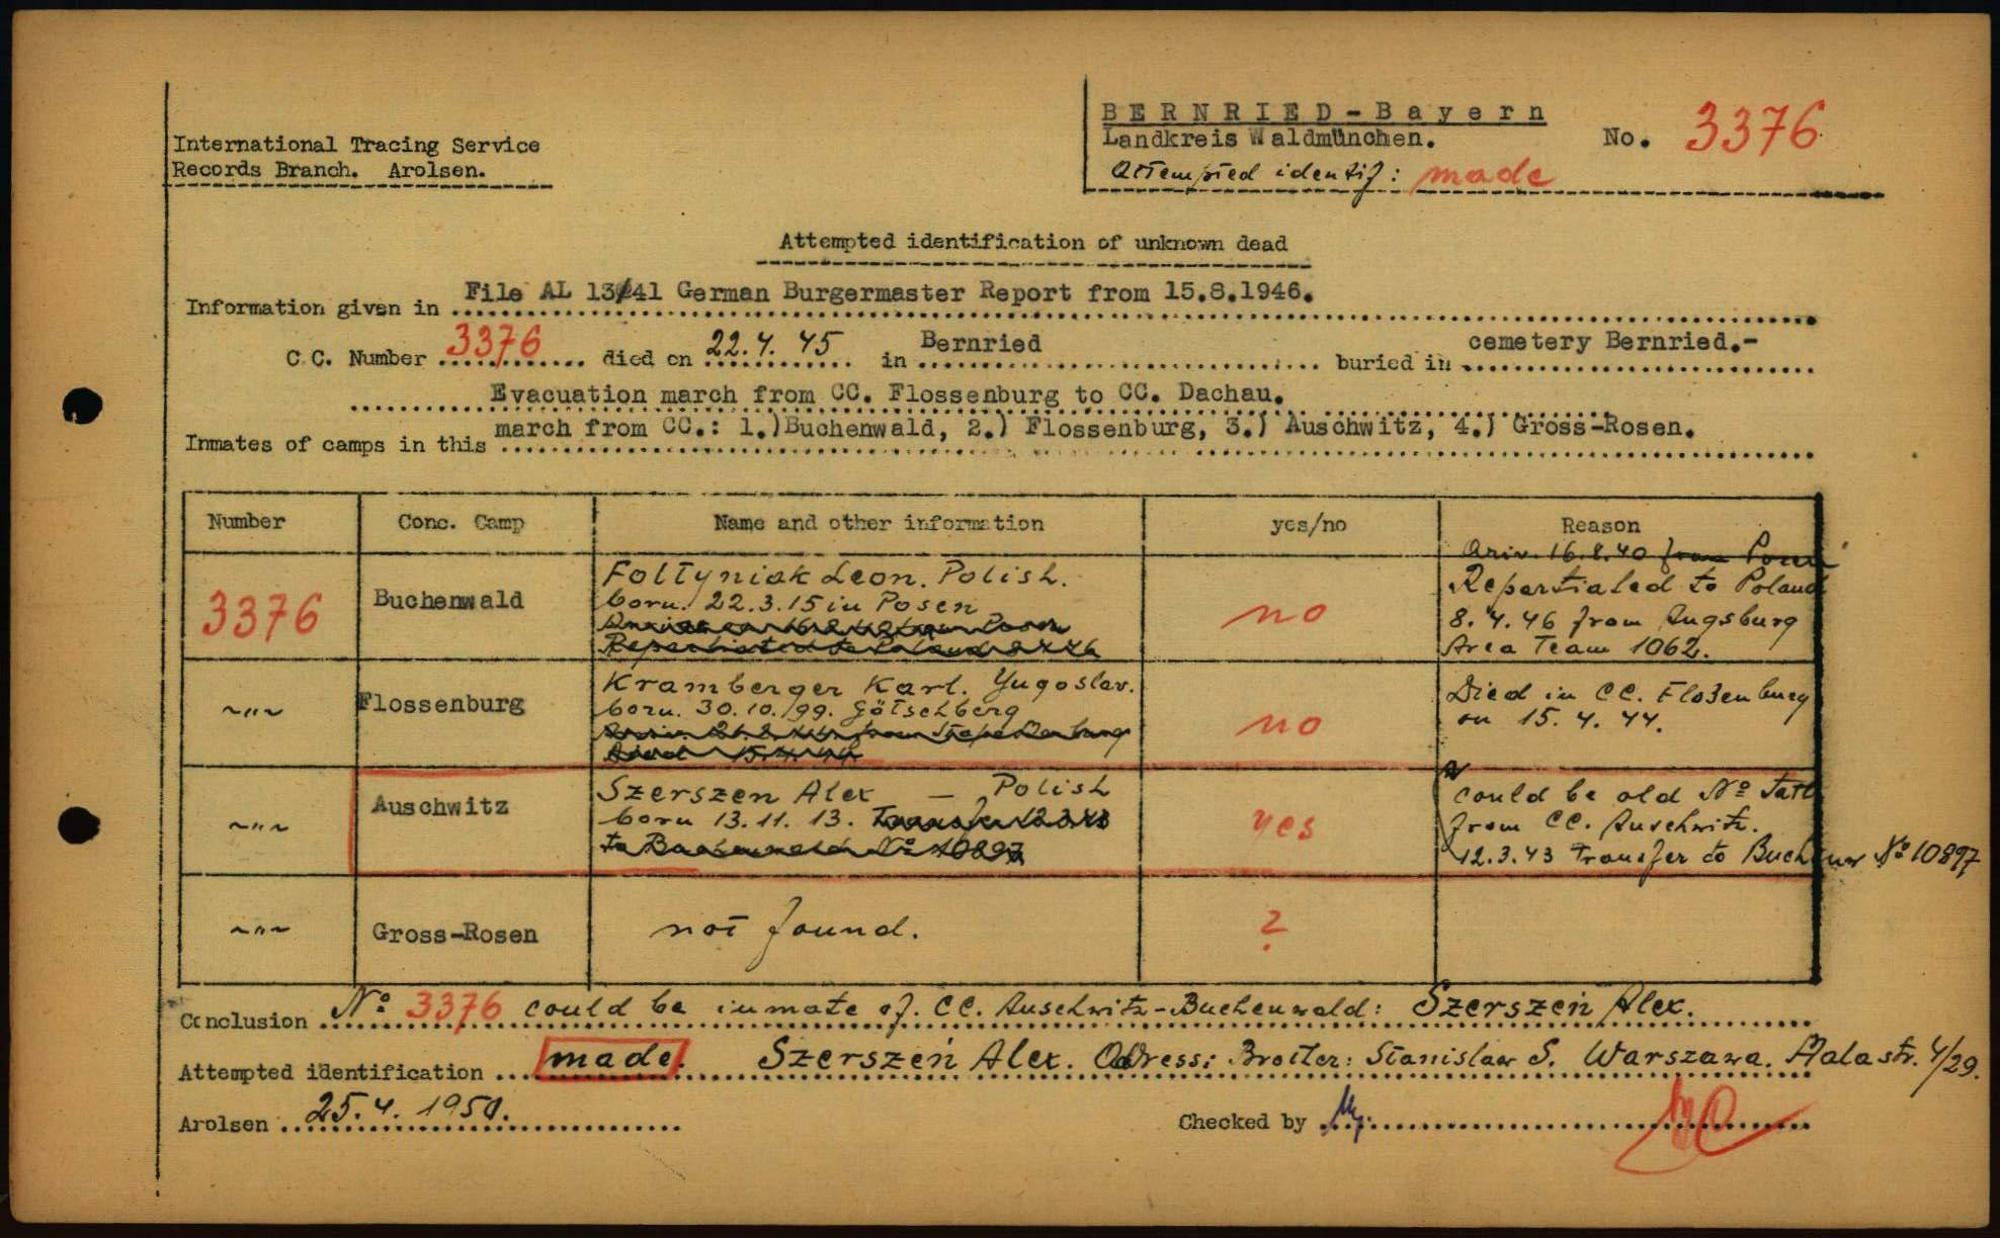 BERNRIED-Bayern
Landkreis Waldmünchen.
No. 3376
International Tracing Service
Records Branch. Arolsen.
Attempted identif: made
Attempted identification of unknown dead
Information given in File AL 13/41 German Burgermaster Report from 15.8.1946.
C.C. Number 3376 died on 22.4.45 in Bernried buried in cemetery Bernried.-
Evacuation march from CC. Flossenburg to CC. Dachau.
Inmates of camps in this march from CC.: 1.)Buchenwald, 2.) Flossenburg, 3.) Auschwitz, 4.) Gross-Rosen.
Number Conc. Camp Name and other information yes/no Reason
3376 Buchenwald
Foltyniak Leon. Polish.
born. 22.3.15 in Posen
no
Ariv. 16.8.40 from Posen
Repartiated to Poland
8.4.46 from Augsburg
Area Team 1062.
~"~ Flossenburg
Kramberger Karl. Yugoslav.
born. 30.10.99. Götschberg
Died 15.4.44
no
Died in CC. Floßenburg
on 15.4.44.
~"~ Auschwitz
Szerszen Alex — Polish
born 13.11.13. Transfer 12.3.43
to Buchenwald No 10897
yes
could be old No
from CC. Auschwitz.
12.3.43 Transfer to No 10897
~"~ Gross-Rosen
not found.
?
Conclusion No 3376 could be inmate of. CC. Auschwitz-Buchenwald: Szerszeń Alex.
Attempted identification made. Szerszeń Alex. Address: Brother: Stanislaw S. Warszawa. Halastr. 4/29.
Arolsen 25.4.1950.
Checked by